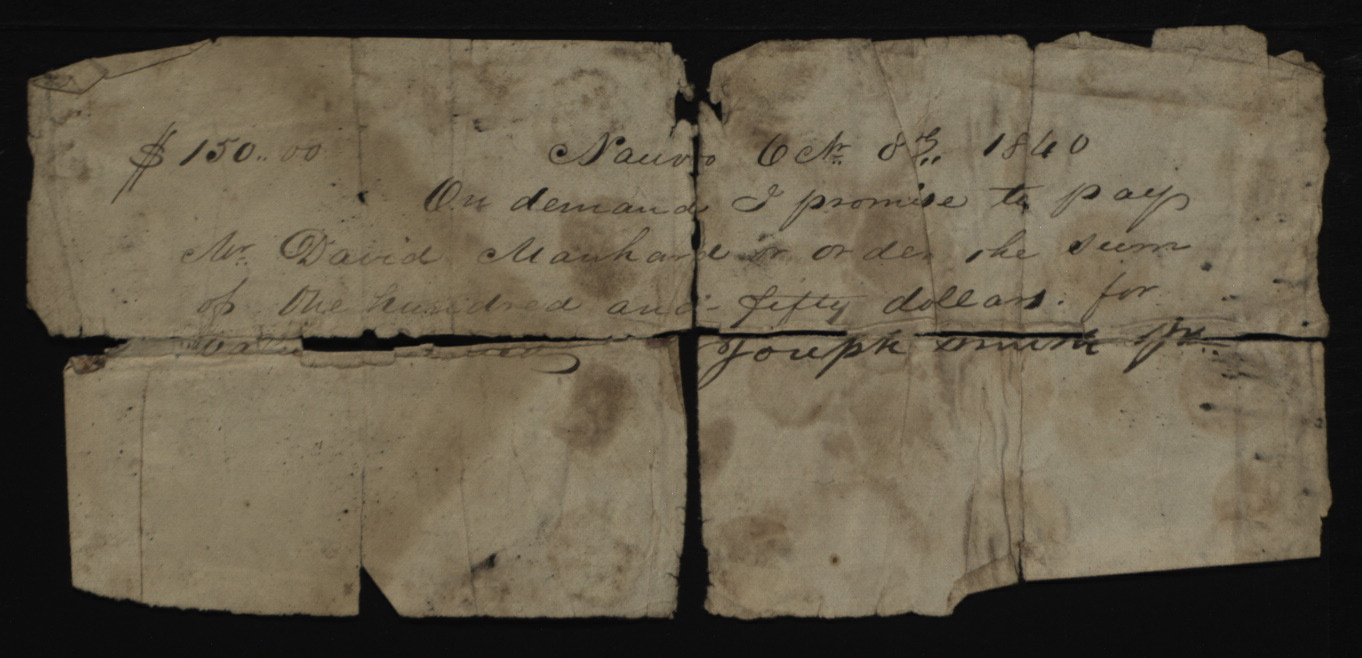 $150.. 00 Nauvoo Octr. 8th,, 1840
On demand I promise to pay
Mr. David Manhard or order the sum
of One hundred and fifty dollars. for
Joseph Smith Jr.